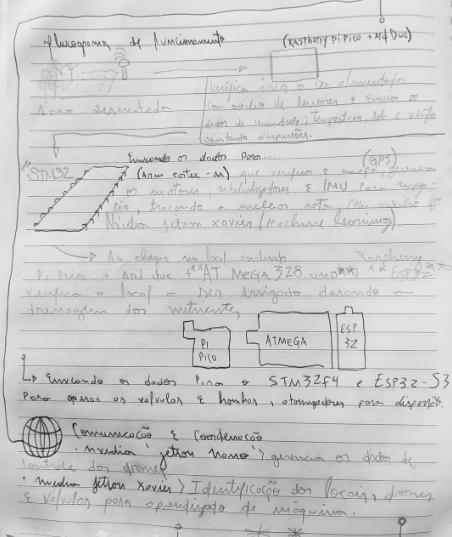 Flurograma de funcionamento
(RASPBERRY PI PICO + Ard Due)
Verifica área a Ser alimentados
com auxilio de sensores e Envia os
dados de umidade; temperatura, solo e vento
evitando dispersões.
Área desmatada
Enviando os dados Para
"STM32
(Arm cortex-M) que verifica e
(GPS)
os motores; estabilizadores E IMU Para
ção, traçando a melhor rota com auxilio do
Nvidia jetson xavier (Machine Learning).
Ao chegar no local Raspberry
Pi Pico + Ard due + **AT MEGA 328 uno** ** ESP32**
verifica o local a Ser irrigado dosando a
drenagem dos nutrientes,
PI
PICO
ATMEGA
ESP
32
Enviando os dados Para o STM32F4 e ESP32-S3
Para operar as valvulas E bombas, atomizadores para dispersão.
Comunicação E Coordenação
• nvidia 'jetson nano' > gerencia os dados de
controle dos drones
• nvidia jetson xavier > Identificação dos locais, drones
E valvulas para aprendizado de máquina.